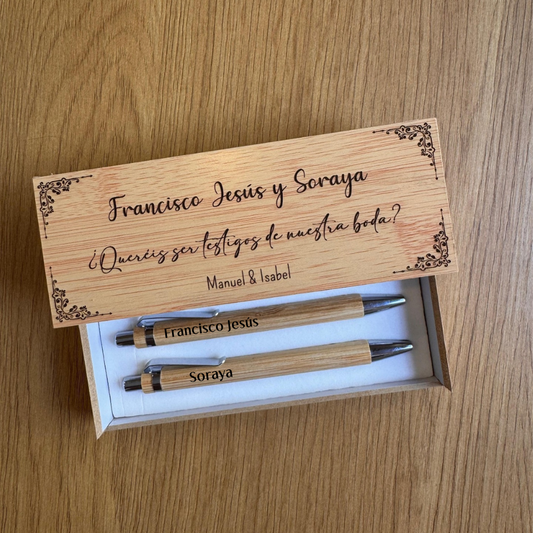 Francisco Jesús y Soraya
¿Queréis ser testigos de nuestra boda?
Manuel & Isabel
Francisco Jesús
Soraya